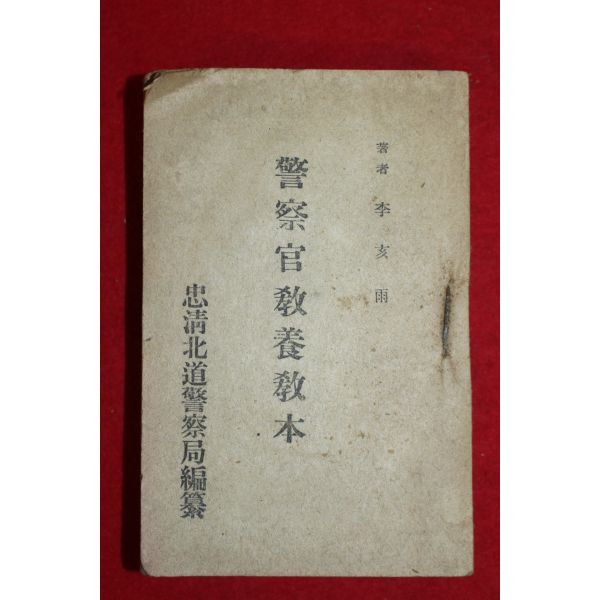 著者 李亥雨
警察官教養教本
忠清北道警察局編纂